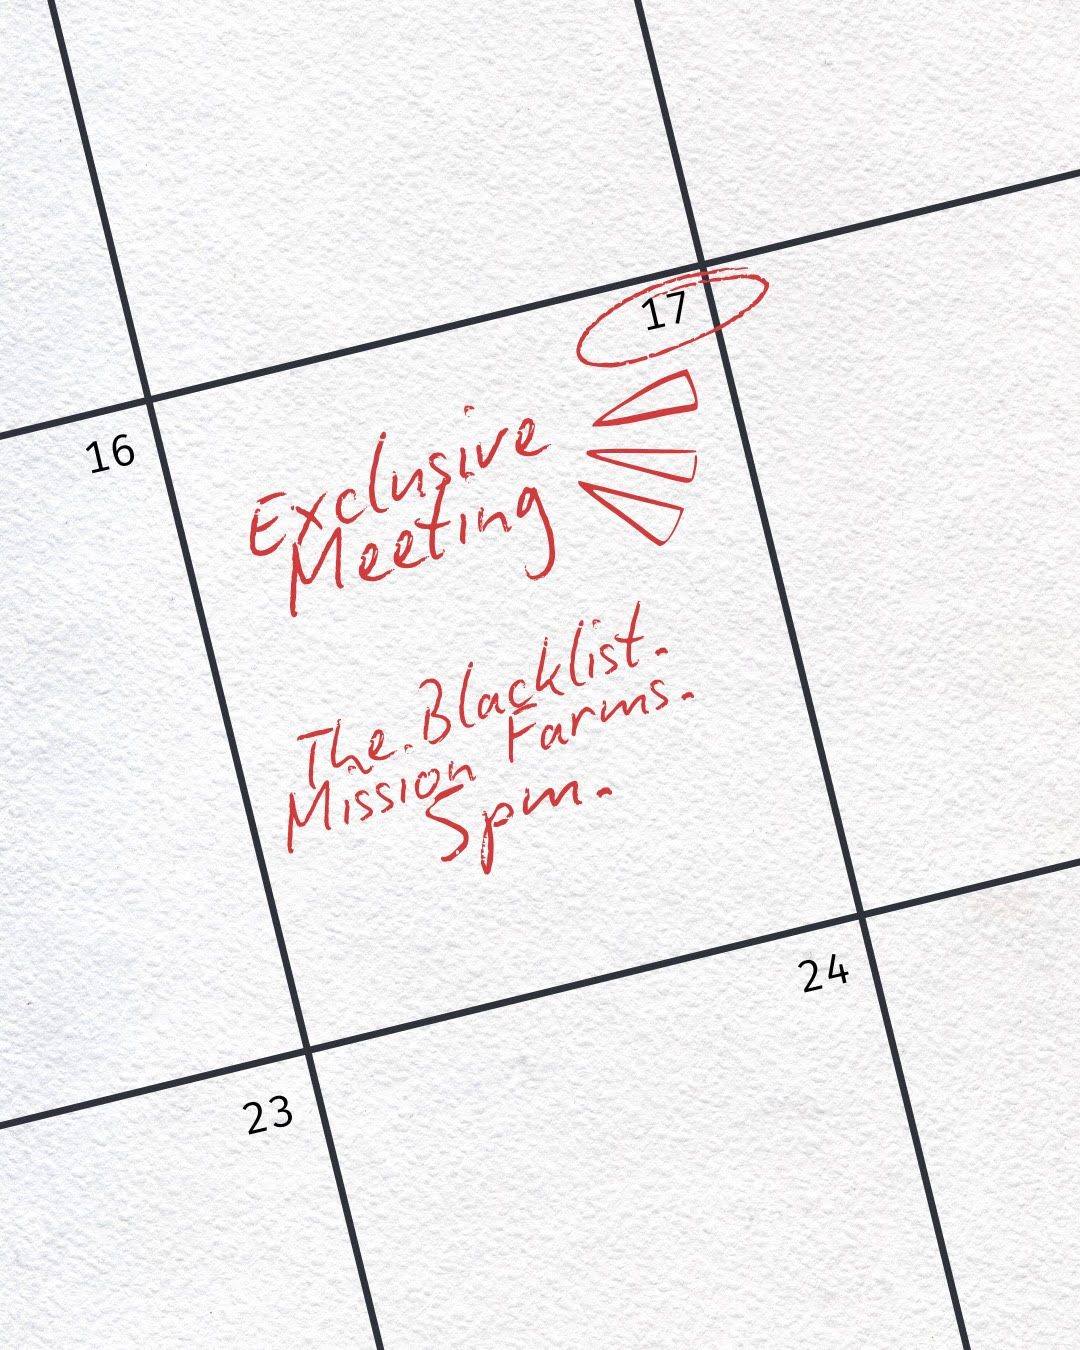 17
16
Exclusive
Meeting
The.Blacklist.
Mission Farms.
5pm.
24
23